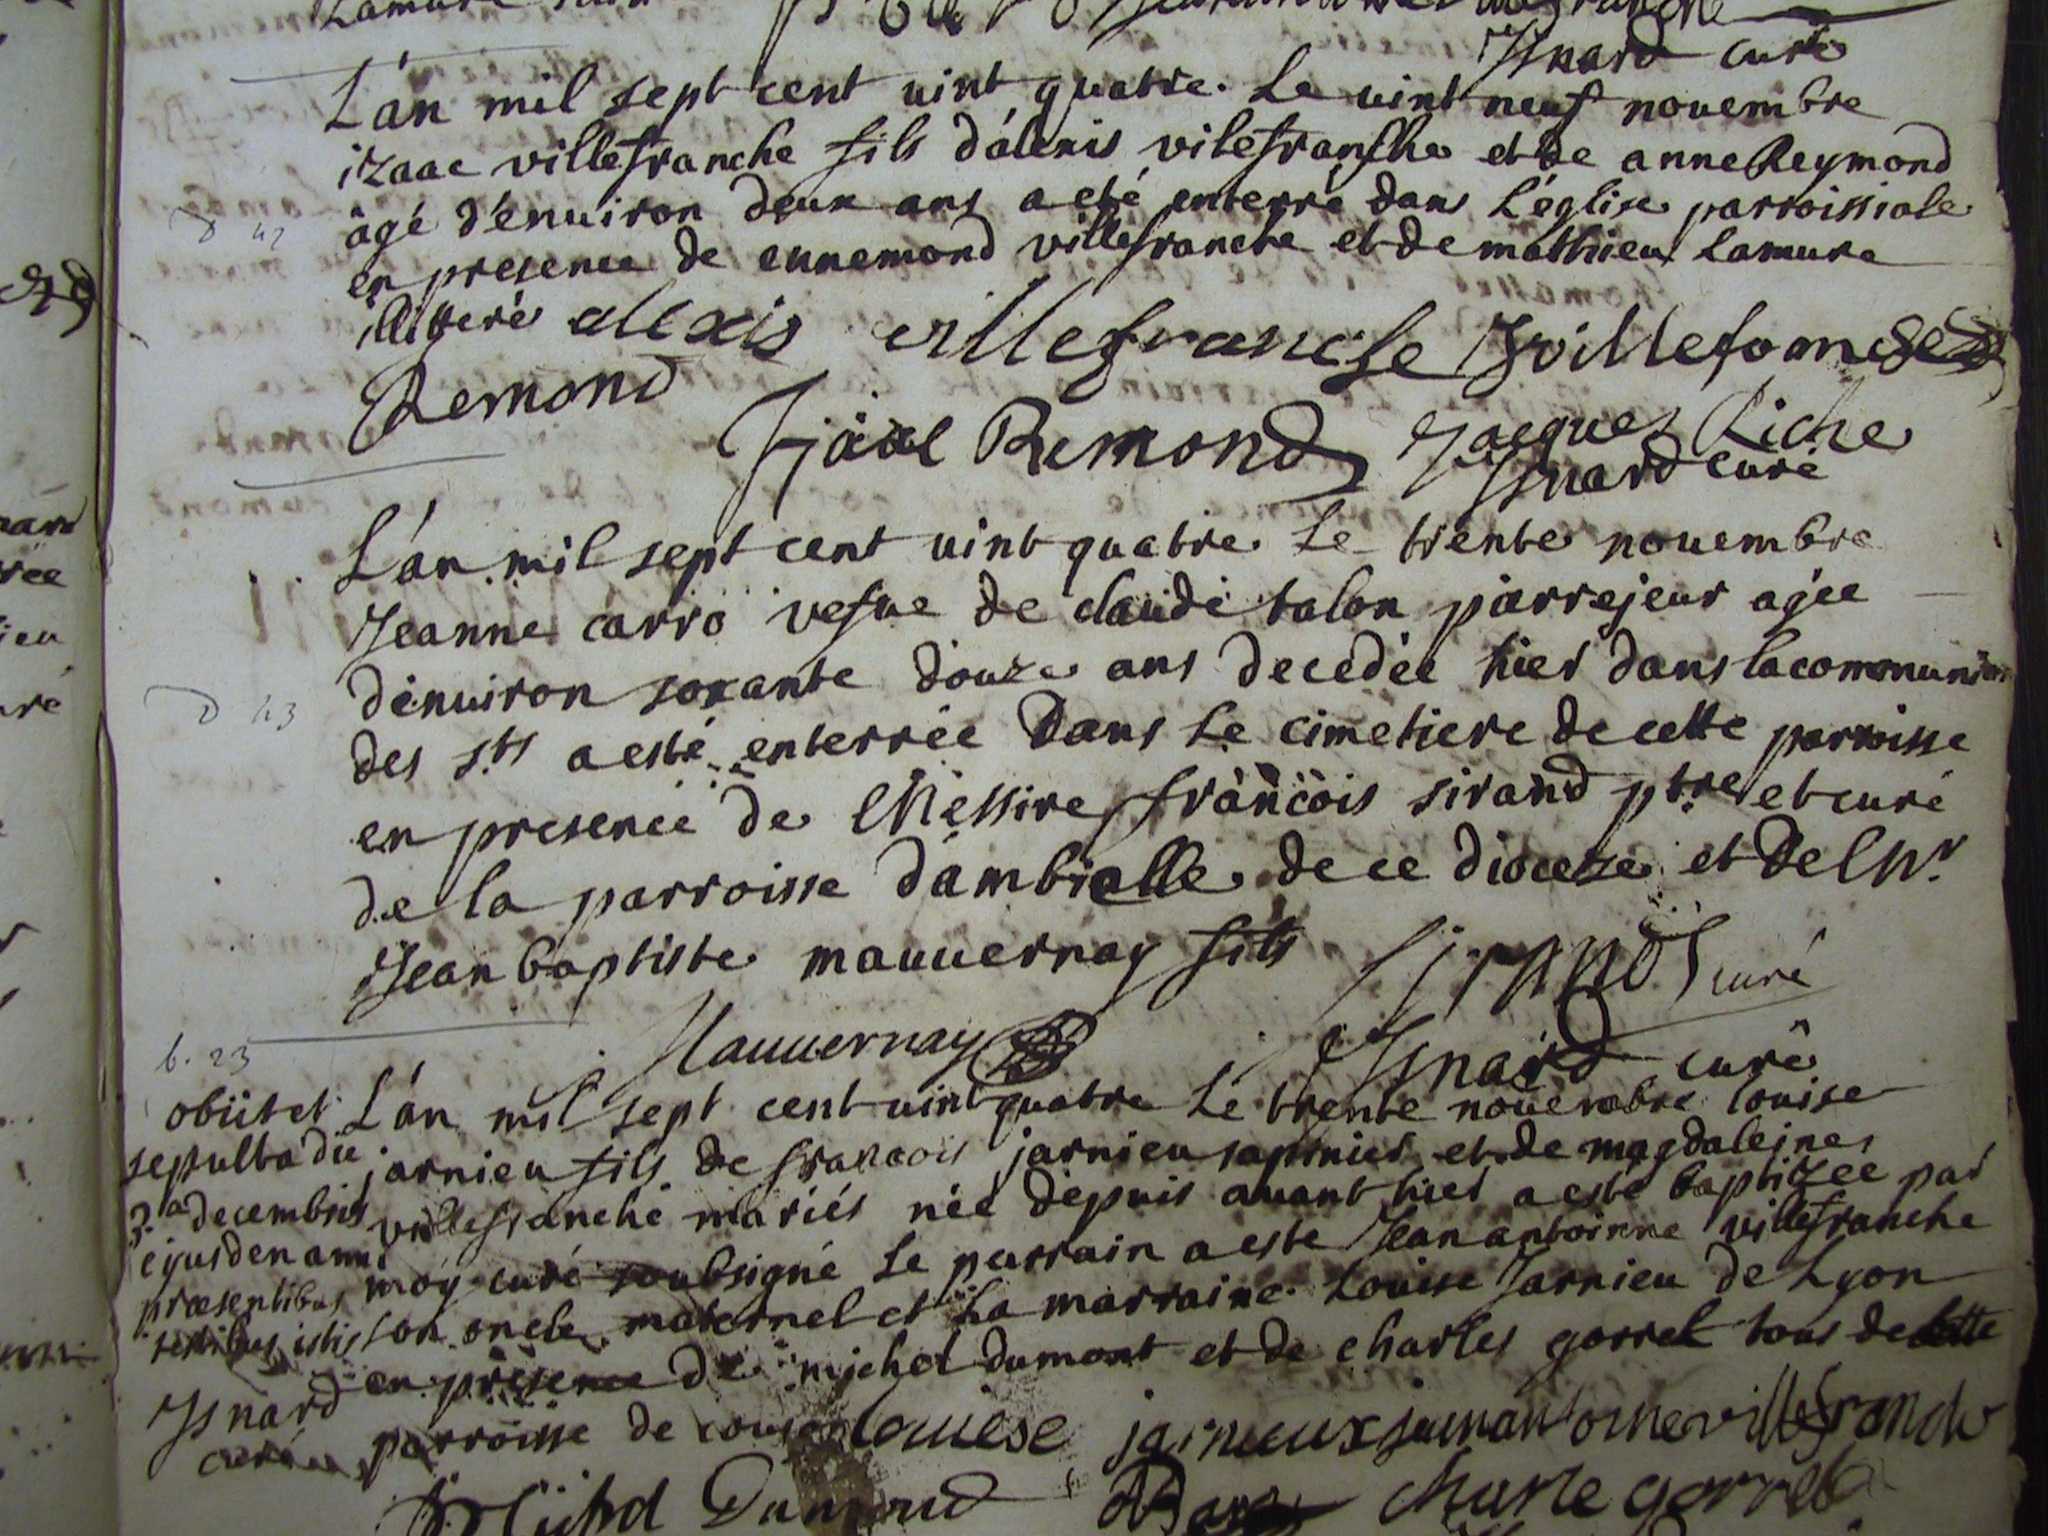 Isnard curé
L'an mil sept cent uint quatre. Le uint neuf nouembre
izaac villefranche fils d'alexis vilefranche et de anne Reymond
D 42
âgé d'enuiron deux ans a esté enterré dans L'église parroissiale
en presence de ennemond villefranche et de mathieu Lamure
illitteré alexis villefranche
Remond Isaac Remond Jacques Riche
Isnard curé
L'an mil sept cent uint quatre Le trente nouembre
Jeanne carro vefue de claude talon parrejeur agée
D 43
d'enuiron soxante douze ans decedée hier dans la communion
des sts a esté enterrée Dans Le cimetiere de cette parroisse
en presence de Messire françois sirand ptre et curé
de la parroisse d'ambialle de ce dioceze et de Mr
Jean baptiste mauuernay fils Sirand curé
Mauuernay Isnard curé
b. 23
L'an mil sept cent uint quatre Le trente nouembre Louise
jarnieu fils de francois jarnieu et de magdaleine
villefranche mariés née depuis auant hier a esté baptizée par
moy curé soubsigné Le parrain a este Jean antoinne villefranche
son oncle maternel et La marraine Louise Jarnieu de Lyon
en presence de michel dumont et de charles gorrel tous de cette
parroisse de Louise jarnieux jeanantoine villefranche
Dumond Charle gorrel
obiit et
sepulta die
3.a decembris
ejusdem anni
præsentibus
testibus istis
Isnard
curé